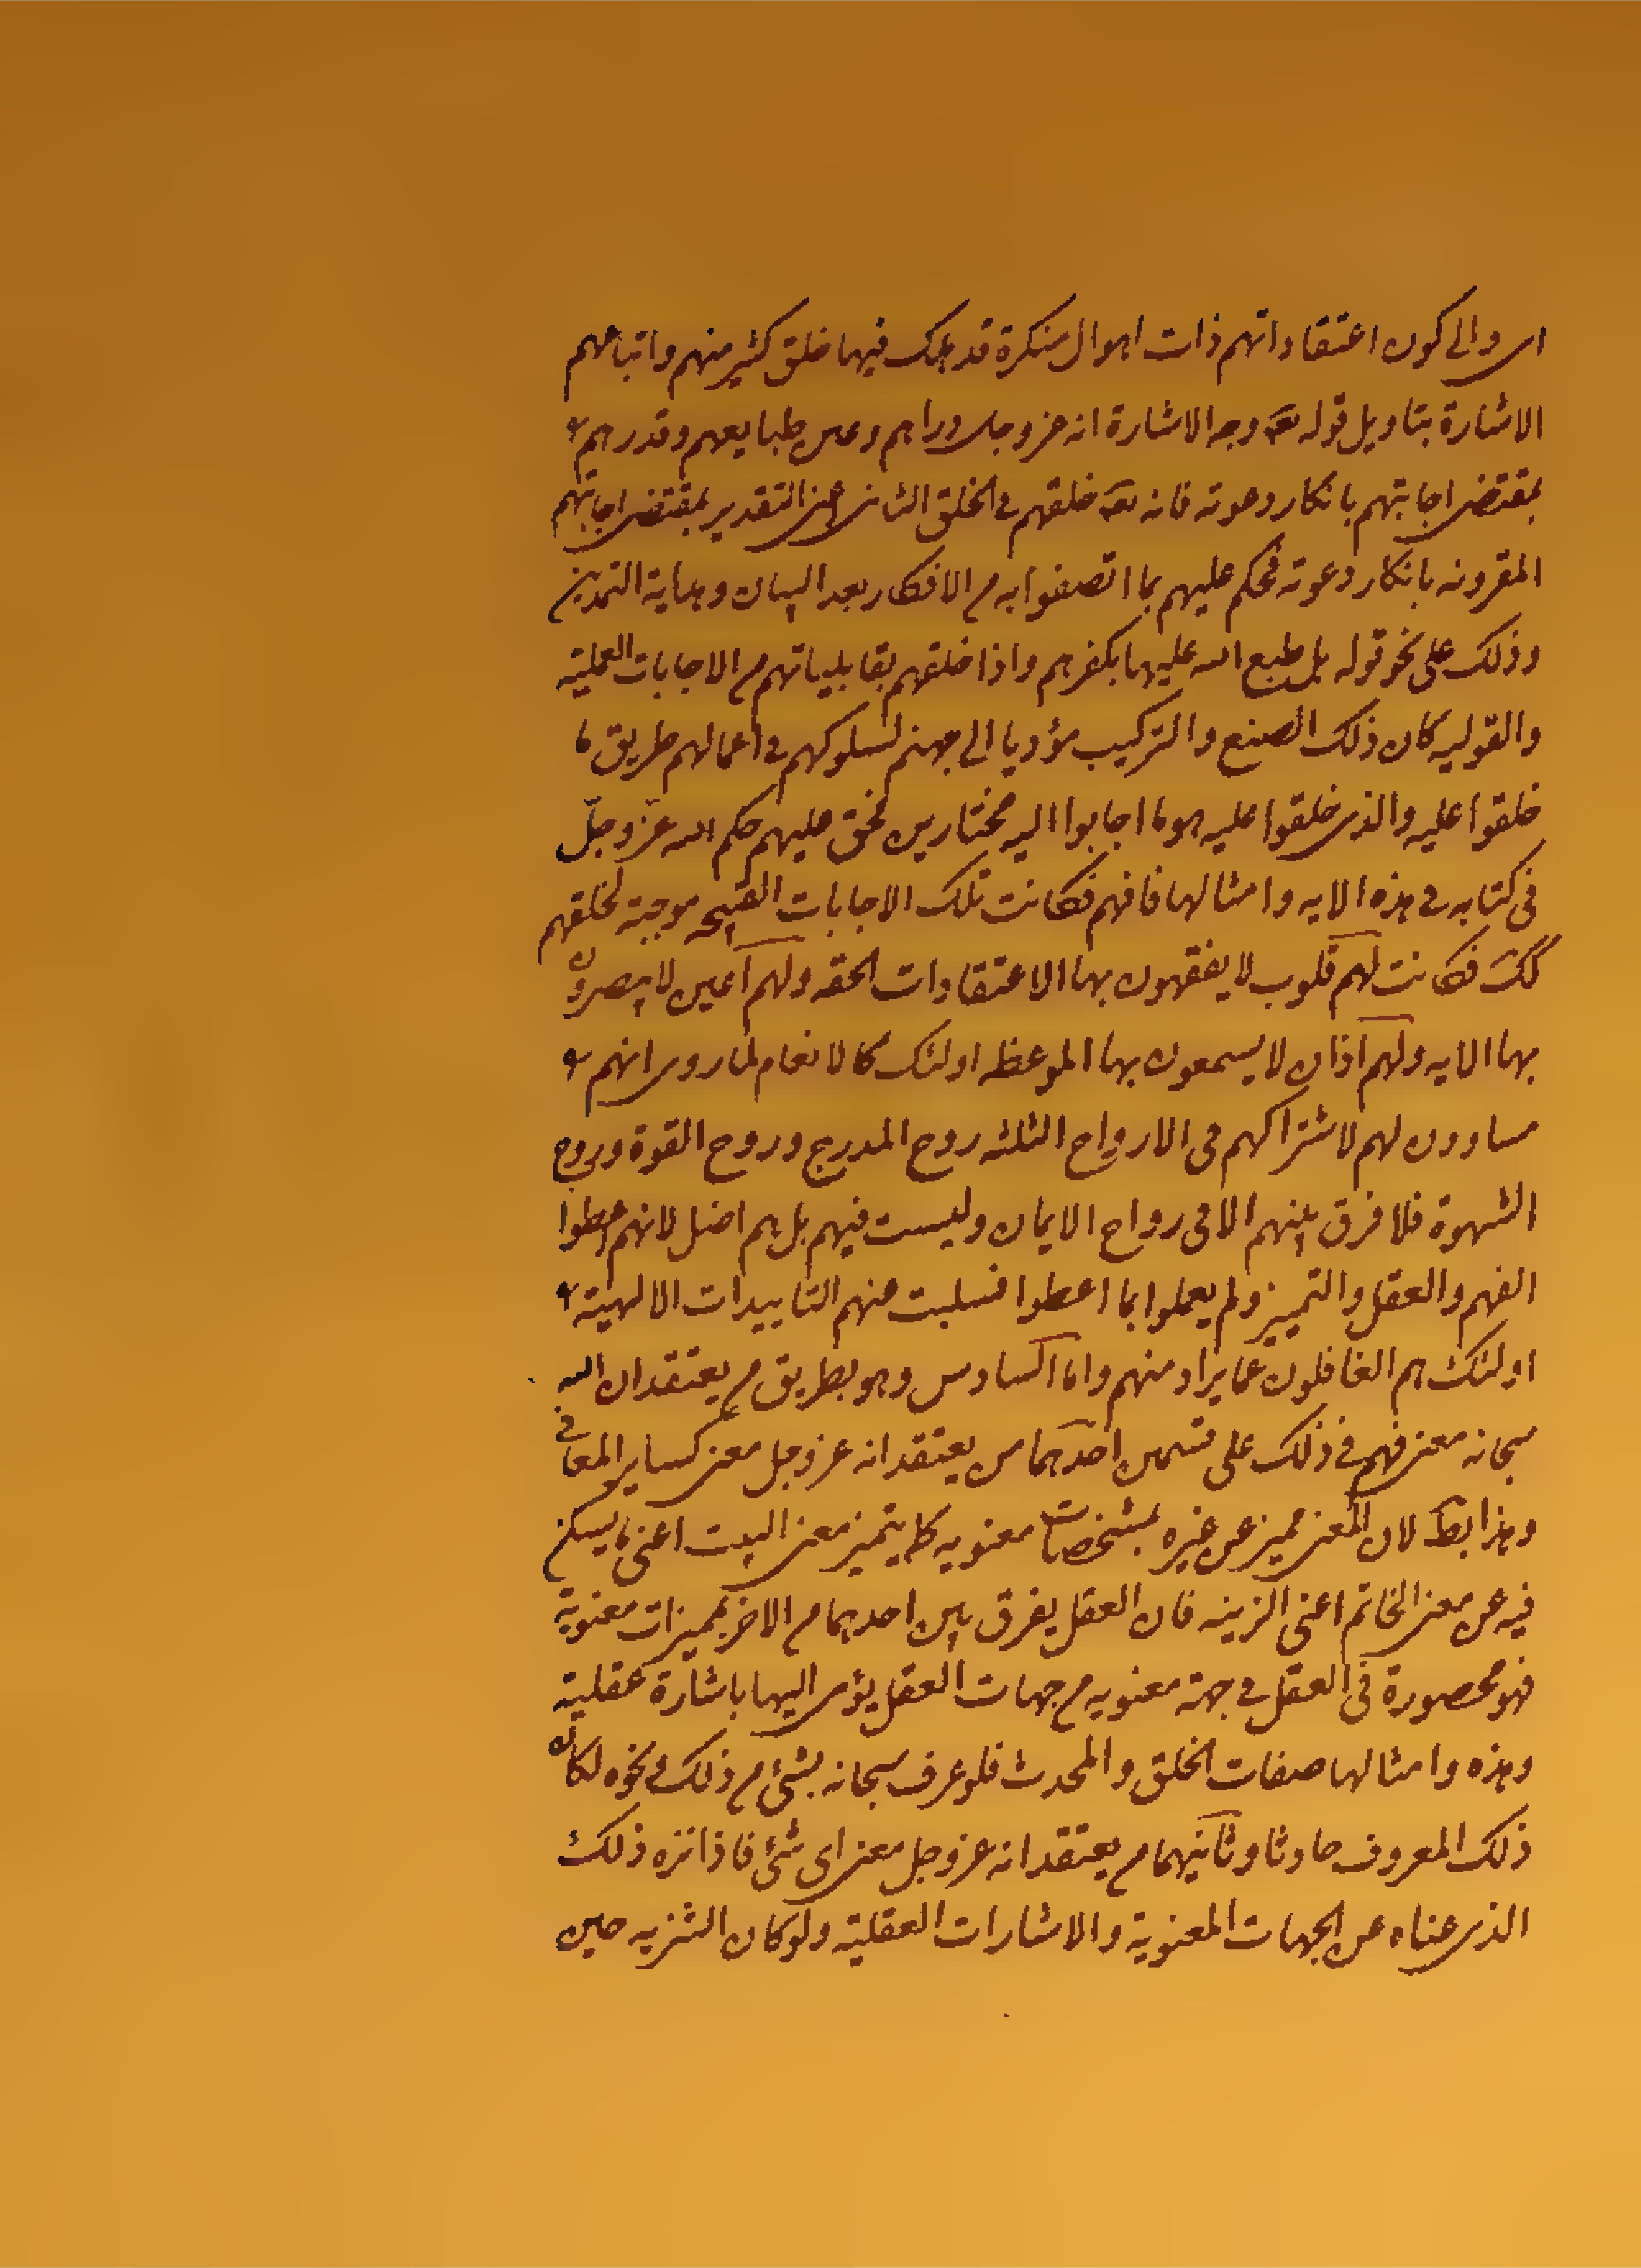 اى والى كون اعتقاداتهم ذات اهوال منكرة قد هلك فيها خلق كثير منهم واتباعهم
الاشارة بتاويل قوله تعه وجه الاشارة انه عز وجل وراهم وعلى طبايعهم وقدرهم
بمقتضى اجابتهم بانكار دعوته فانه تعه خلقهم فى الخلق الثانى اعنى التقدير بمقتضى اجابتهم
المقرونه بانكار دعوته فحكم عليهم بما اتصفوا به من الافكار بعد البيان وهداية النجدين
وذلك على نحو قوله بل طبع الله عليها بكفرهم واذا خلقهم بقابلياتهم من الاجابات العملية
والقوليه كان ذلك الصنع والتركيب مؤديا الى جهنم لسلوكهم فى اعمالهم طريق ما
خلقوا عليه والذى خلقوا عليه هو ما اجابوا اليه مختارين فحق عليهم حكم الله عز وجلّ
فى كتابه فى هذه الايه وامثالها فافهم فكانت تلك الاجابات القبيحه موجبة لخلقهم
كك فكانت لهم قلوب لا يفقهون بها الاعتقادات الحقه ولهم اعين لا يبصرون
بها الايه ولهم اذان لا يسمعون بها الموعظه اولئك كالانعام لما روى انهم
مساوون لهم لاشتراكهم فى الارواح الثلثه روح المدرج وروح القوة وروح
الشهوة فلا فرق بينهم الا فى رواح الايمان وليست فيهم بل هم اضل لانهم اعطوا
الفهم والعقل والتمييز ولم يعملوا بما اعطوا فسلبت منهم التاييدات الالهية
اولئك هم الغافلون عما يراد منهم واما السادس وهو بطريق من يعتقد ان الله
سبحانه معنى فهم فى ذلك على قسمين احدهما من يعتقد انه عز وجل معنى كساير المعانى
وهذا بط لان المعنى مميز عن غيره بمشخصات معنويه كما يتميز معنى البيت اعنى ما يسكن
فيه عن معنى الخاتم اعنى الزينه فان العقل يفرق بين احدهما من الاخر بمميزات معنوية
فهو محصورة فى العقل فى جهة معنويه من جهات العقل يؤمى اليها باشارة عقلية
وهذه وامثالها صفات الخلق والمحدث فلو عرف سبحانه بشئ من ذلك ونحوه لكان
ذلك المعروف حادثا وثانيهما من يعتقد انه عز وجل معنى اى شئ فاذا نزه ذلك
الذى عناه عن الجهات المعنوية والاشارات العقلية ولو كان التنزيه حين